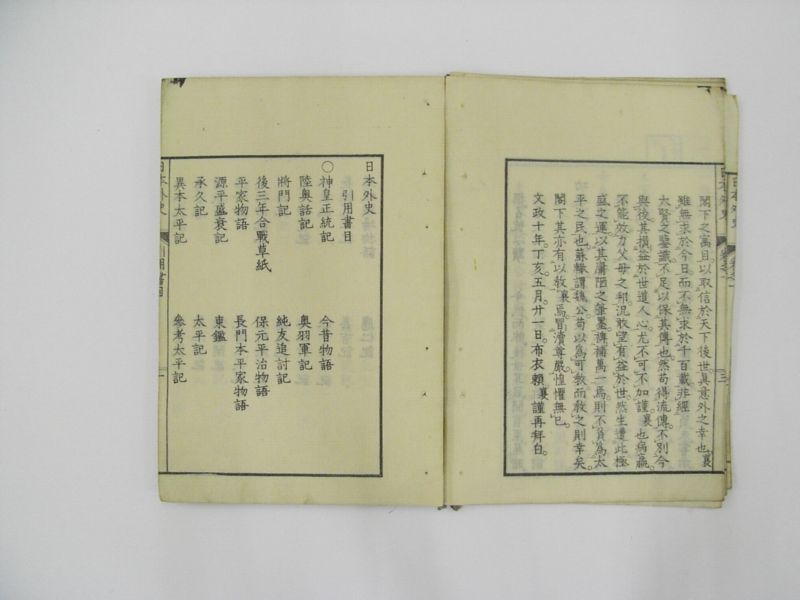 閣下之寓目以取信於天下後世眞意外之幸也襄
雖無求於今日而不無求於千百載非經
太賢之鑒識不足以保其傳也然苟得流傳不別今
與後其損益於世道人心尤不可不加謹襄也病羸
不能效力父母之邦況敢望有益於世然生遭此極
盛之運以其庸陋之筆墨裨補萬一焉則不負爲太
平之民也蘇轍謂魏公苟以爲可敎而敎之則幸矣
閣下其亦有以敎襄焉冒瀆尊嚴惶懼無已
文政十年丁亥五月廿一日布衣賴襄謹再拜白
日本外史
引用書目
〇神皇正統記 今昔物語
陸奥話記 奥羽軍記
將門記 純友追討記
後三年合戰草紙 保元平治物語
平家物語 長門本平家物語
源平盛衰記 東鑑
承久記 太平記
異本太平記 參考太平記
日本外史 引用書目 一